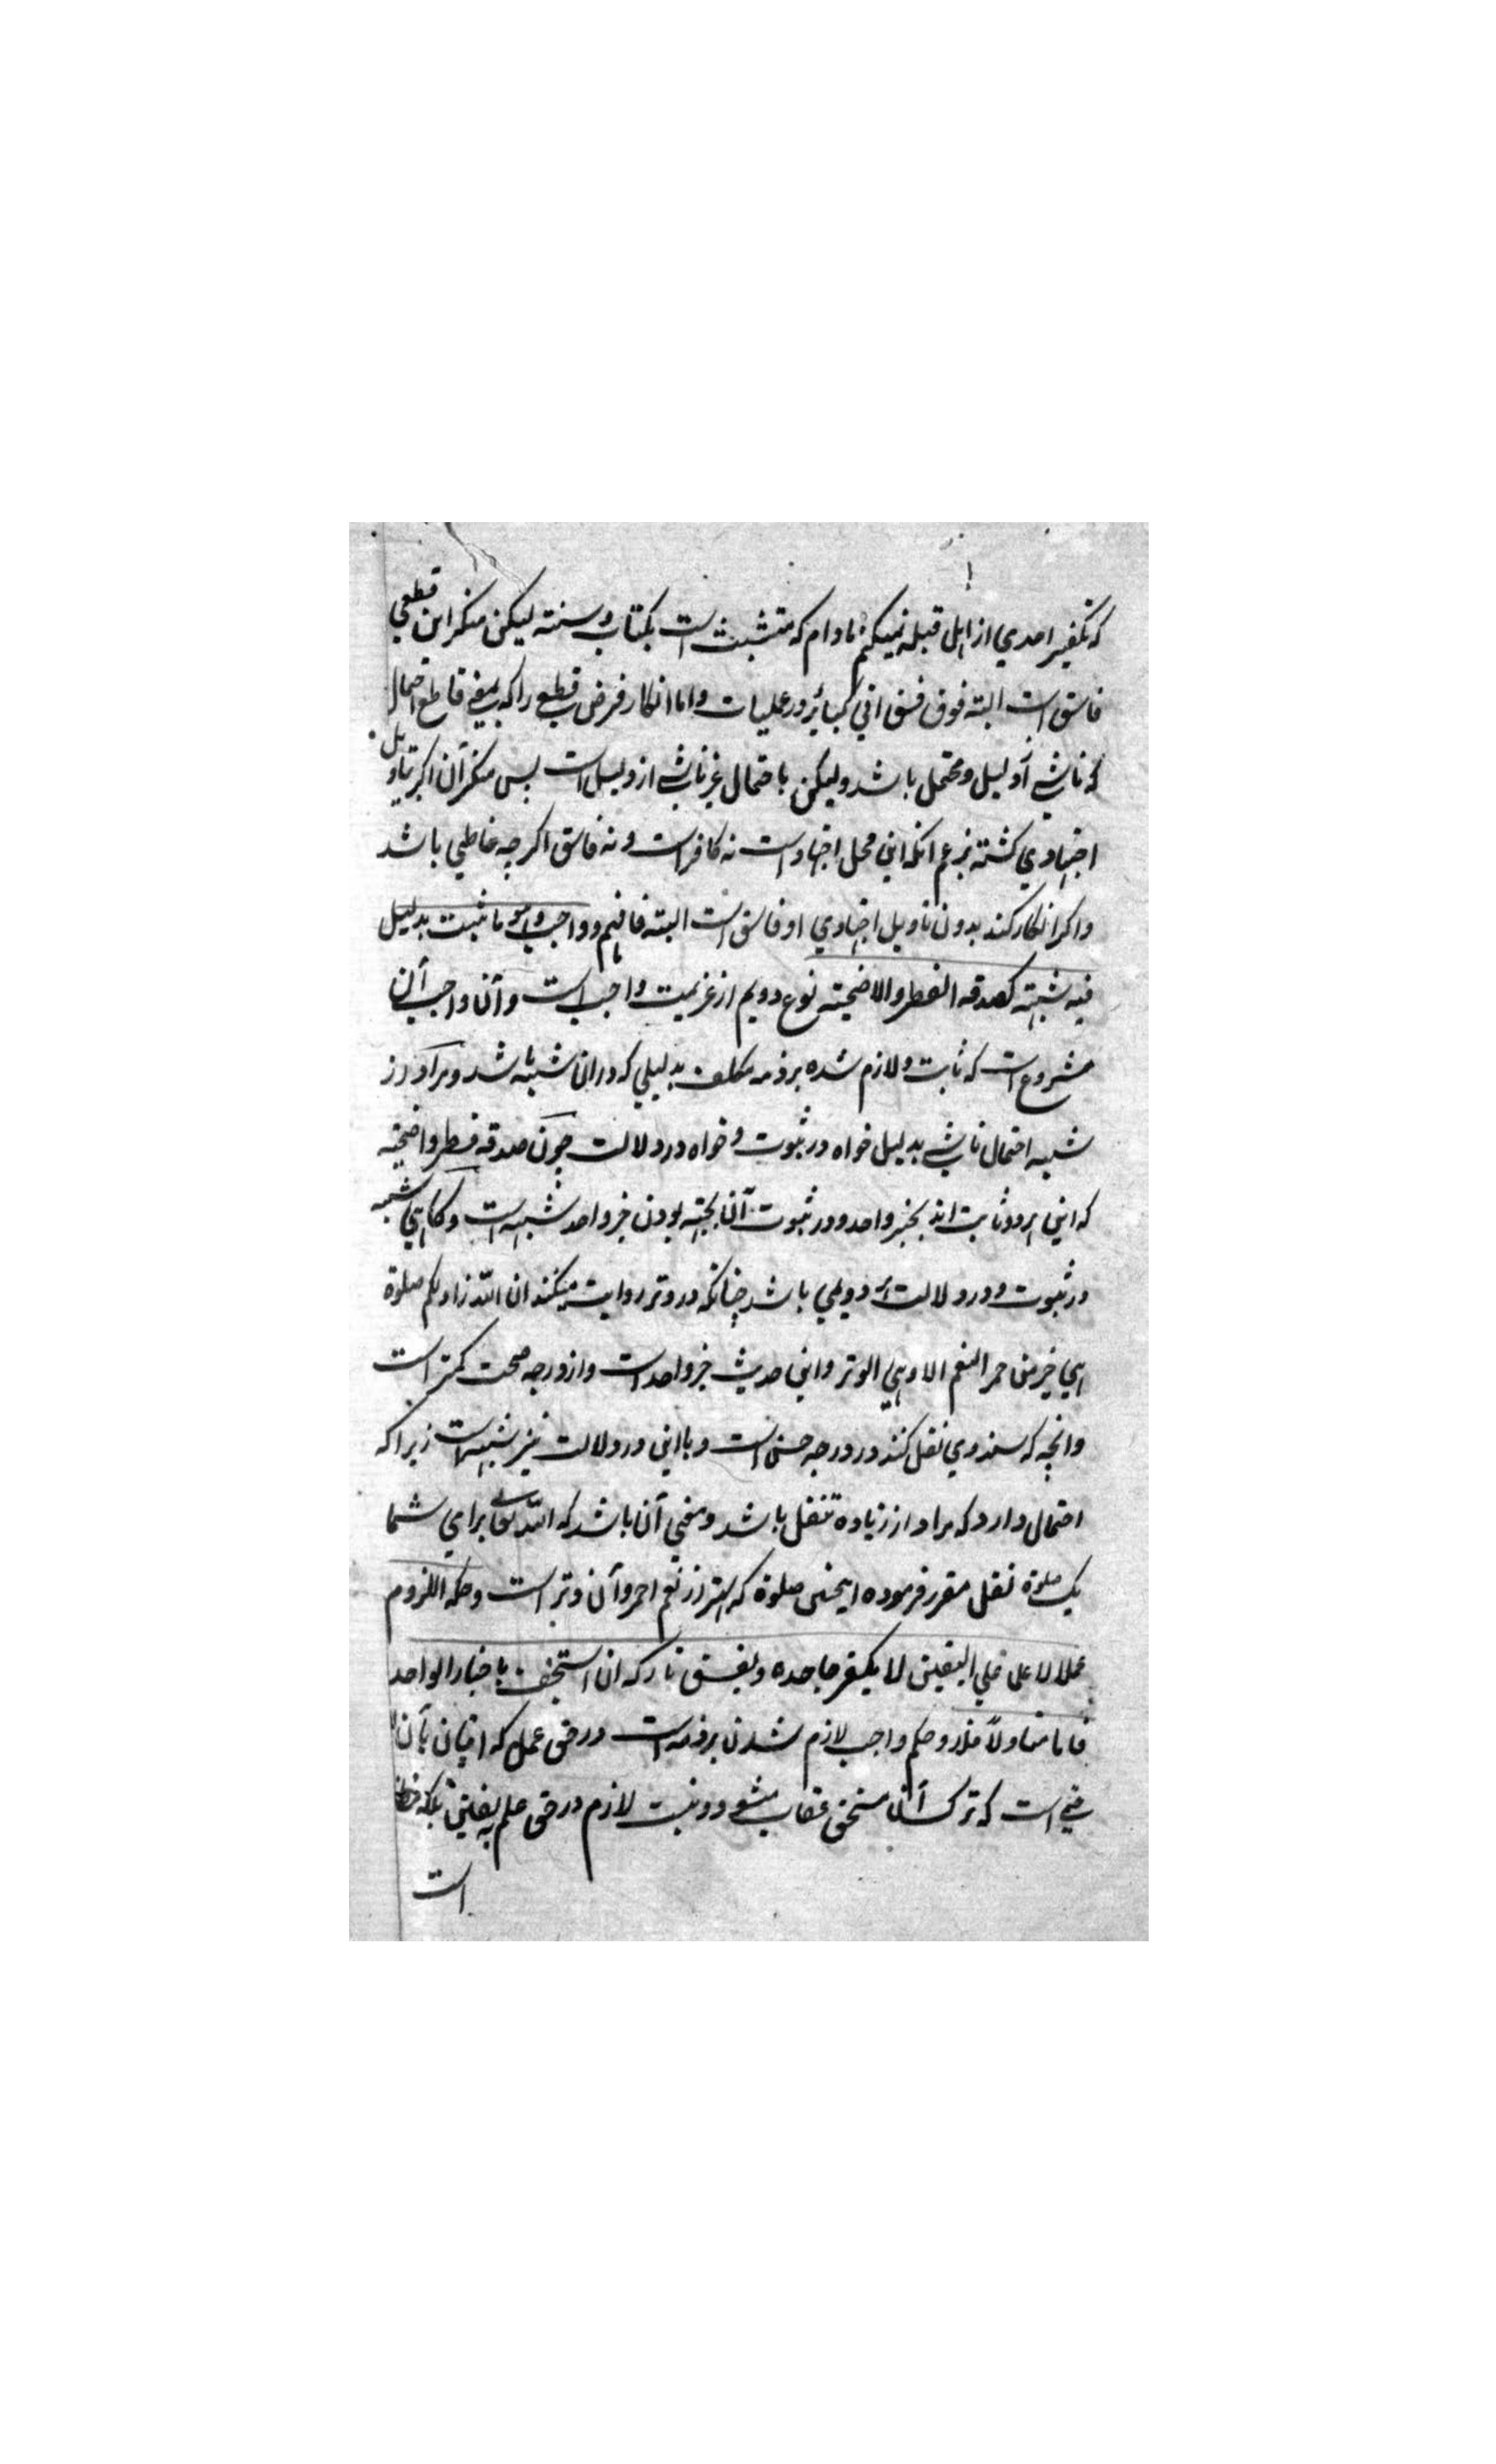 که تکفیر احدي از اهل قبله نمیکنم مادام که متشبث است بکتاب و سنته لیکن منکر این قطعي
فاسق است البته فوق فسق اني کبائر در عملیات و اما انکار فرض قطعي را که بمعنے قاطع احتمال
که ناشے از دلیل و محتمل باشد و لیکن باحتمال غیر ناشے از دلیل است پس منکر آن اکر بتاویل
اجتهادي کشته بزعم انکه این محل اجتهاد است نه کافر است و نه فاسق اکرچه خاطي باشد
و اکر انکار کند بدون تاویل اجتهادي او فاسق است البته فافهم و واجب و هو ما ثبت بدلیل
فیه شبهته کصدقه الفطر و الاضحیته نوع دویم از عزیمت واجب است و آن واجب آن
مشروع است که ثابت و لازم شده بر ذمه مکلف بدلیلي که دران شبهه باشد و مراد از
شبهه احتمال ناشے بدلیل خواه در ثبوت و خواه در دلالت چون صدقه فطر و اضحیته
که این هر دو ثابت اند بخبر واحد و در ثبوت آن بجهته بودن خبر واحد شبهه است و کاهي شبهه
در ثبوت و در دلالت هر دو مي باشد چنانکه در وتر روایت میکنند ان الله زادکم صلوة
هي خیر من حمر النعم الا و هي الوتر و این حدیث خبر واحد است و از درجه صحت کمتر است
و انچه که سندوي نقل کنند در درجه حسن است و با این در دلالت نیز شبهه است زیرا که
احتمال دارد که مراد از زیاده تنفل باشد و معني آن باشد که الله تعالے براي شما
یک صلوة نفل مقرر فرموده اینچنین صلوة که بهتر از نعم احمر و آن وتر است و حکمه اللزوم
عملا لا علما علي الیقین لا یکفر جاحده و یفسق تارکه ان استخف باخبار الواحد
فاما متاولا فلا و حکم واجب لازم شدن بر ذمه است در حق عمل که اتیان بآن
است که ترک آن مستحق عقاب میشود و نیست لازم در حق علم یقین بلکه
است